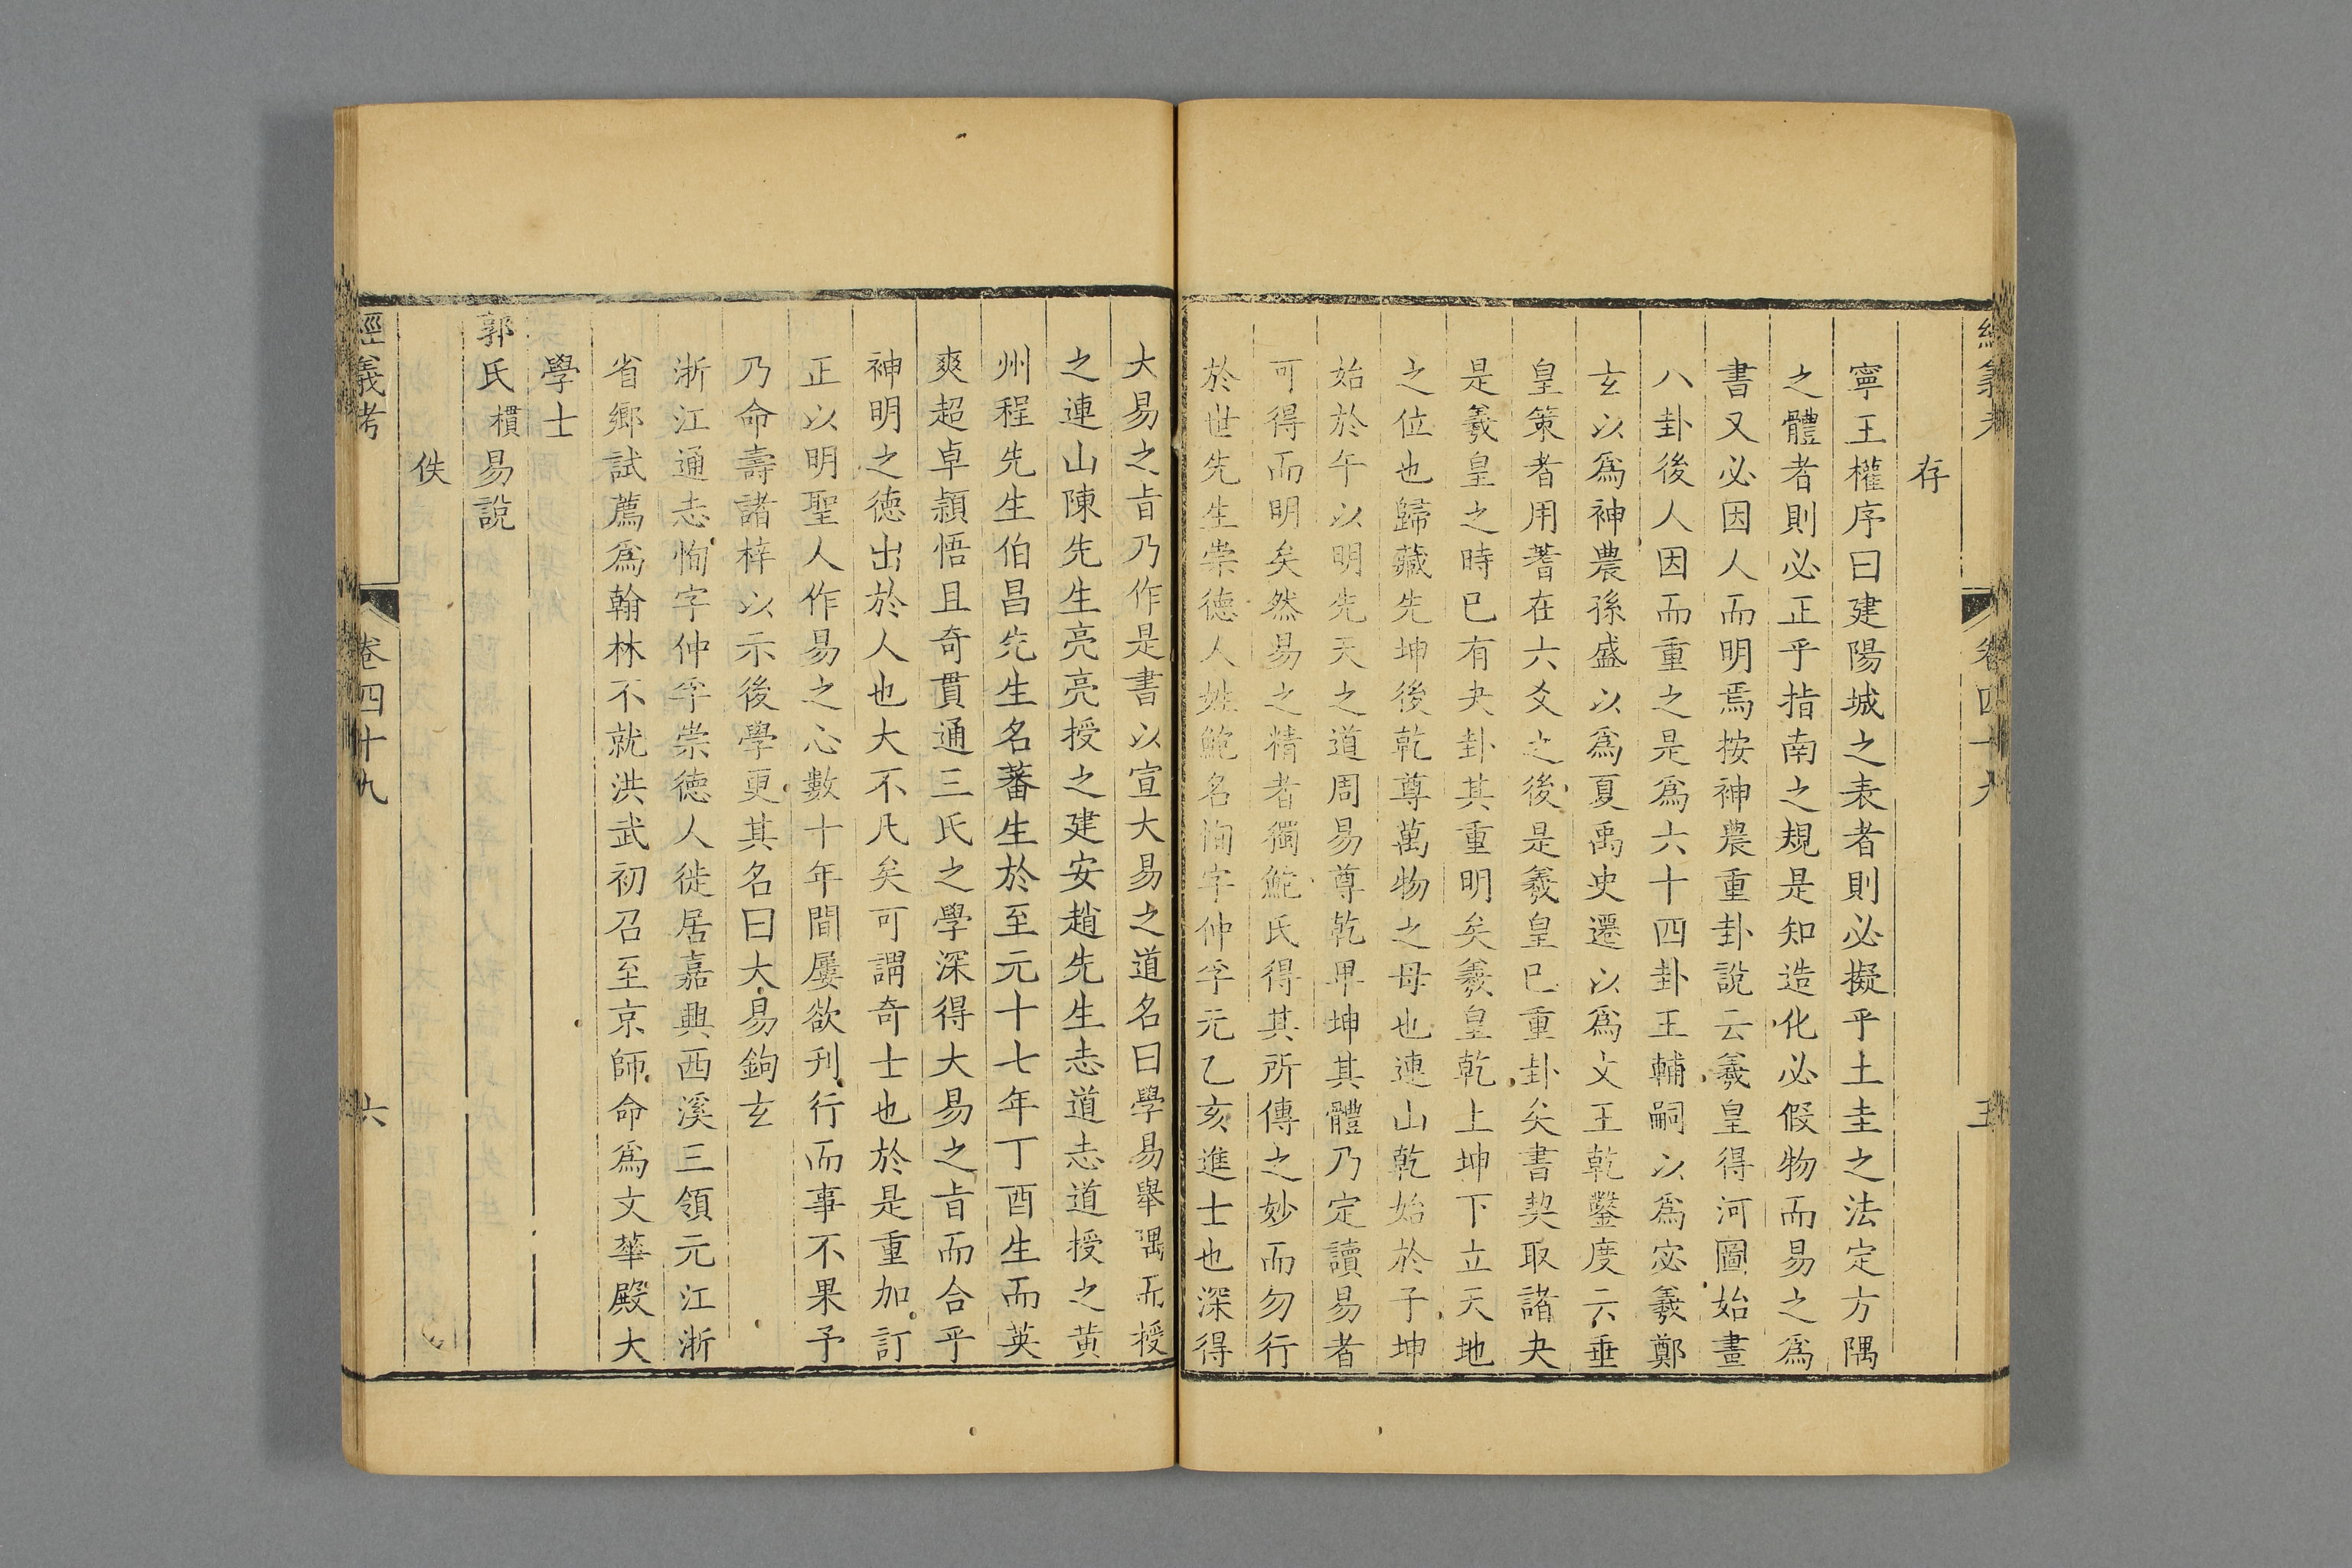 經義考
卷四十九
五
存
寧王權序曰建陽城之表者則必擬乎土圭之法定方隅
之體者則必正乎指南之規是知造化必假物而易之爲
書又必因人而明焉按神農重卦說云羲皇得河圖始畫
八卦後人因而重之是爲六十四卦王輔嗣以爲宓羲鄭
玄以爲神農孫盛以爲夏禹史遷以爲文王乾鑿度云垂
皇策者用蓍在六爻之後是羲皇已重卦矣書契取諸夬
是羲皇之時已有夬卦其重明矣羲皇乾上坤下立天地
之位也歸藏先坤後乾尊萬物之母也連山乾始於子坤
始於午以明先天之道周易尊乾卑坤其體乃定讀易者
可得而明矣然易之精者獨鮑氏得其所傳之妙而勿行
於世先生崇德人姓鮑名恂字仲孚元乙亥進士也深得
大易之旨乃作是書以宣大易之道名曰學易舉隅而授
之連山陳先生亮亮授之建安趙先生志道志道授之黃
州程先生伯昌先生名蕃生於至元十七年丁酉生而英
爽超卓穎悟且奇貫通三氏之學深得大易之旨而合乎
神明之德出於人也大不凡矣可謂奇士也於是重加訂
正以明聖人作易之心數十年間屢欲刊行而事不果予
乃命壽諸梓以示後學更其名曰大易鉤玄
浙江通志恂字仲孚崇德人徙居嘉興西溪三領元江浙
省鄉試薦爲翰林不就洪武初召至京師命爲文華殿大
學士
郭氏檟易說
佚
經義考
卷四十九
六